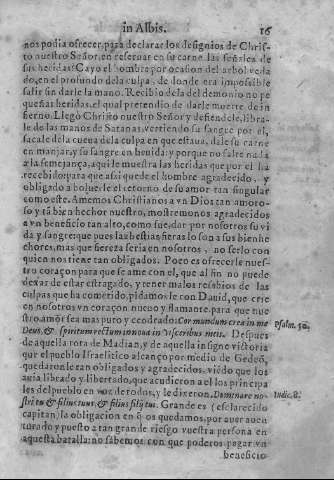 in Albis. 16
nos podia ofrecer, para declarar los designios de Chris-
to nuestro Señor, en reseruar en su carne las señales de
sus heridas? Cayo el hombre por ocasion del arbol veda
do, en el profundo de la culpa, de donde era impossible
salir sin darle la mano. Recibio de la del demonio no pe
queñas heridas, el qual pretendio de darle muerte de in
fierno. Llegò Christo nuestro Señor y defiendele, libra-
le de las manos de Satanas, vertiendo su sangre por el,
sacale de la cueua de la culpa en que estaua, dale su carne
en manjar, y su sangre en beuida: y porque no salte nada
à la semejança, aqui le muestra las heridas que por el ha
recebido: para que assi quede el hombre agradecido, y
obligado a boluerle el retorno de su amor tan singular
como este. Amemos Christianos a vn Dios tan amoro-
so y tã bien hechor nuestro, mostremonos agradecidos
a vn beneficio tan alto, como fue, dar por nosotros su vi
da y sangre: que pues las bestias fieras lo son a sus bienhe
chores, mas que fiereza seria en nosotros, no serlo con
quien nos tiene tan obligados. Poco es ofrecerle nues-
tro coraçon para que se ame con el, que al fin no puede
dexar de estar estragado, y tener malos resabios de las
culpas que ha cometido, pidamosle con Dauid, que crie
en nosotros vn coraçon nueuo y flamante, para que nue
stro amor sea mas puro y cendrado: Cor mundum crea in me Psalm. 50.
Deus, & spiritum rectum innoua in visceribus meis. Despues
de aquella rota de Madian, y de aquella insigne victoria
que el pueblo Israelitico alcanço por medio de Gedeõ,
quedaronle tan obligados y agradecidos, viẽdo que los
auia librado y libertado, que acudieron a el los principa
les del pueblo en voz de todos, y le dixeron. Dominare no- Iudic. 8.
stri tu & filius tuus, & filius filij tui. Grande es (esclarecido
capitan) la obligacion en q̃ os quedamos, por auer auen
turado y puesto a tan grande riesgo vuestra persona en
aquesta batalla: no sabemos con que poderos pagar vn
beneficio